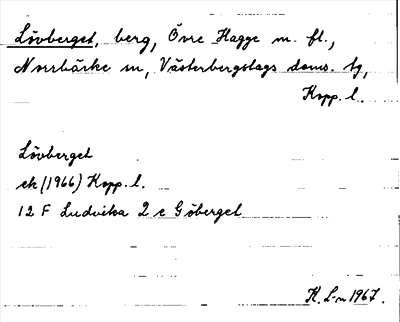 Lövberget, berg, Övre Hagge m. fl.,
Norrbärke sn, Västerbergslags doms. tg,
Kopp. l.
Lövberget
ek (1966) Kopp. l.
12 F Ludvika 2 c Göberget
K. L-m 1967.